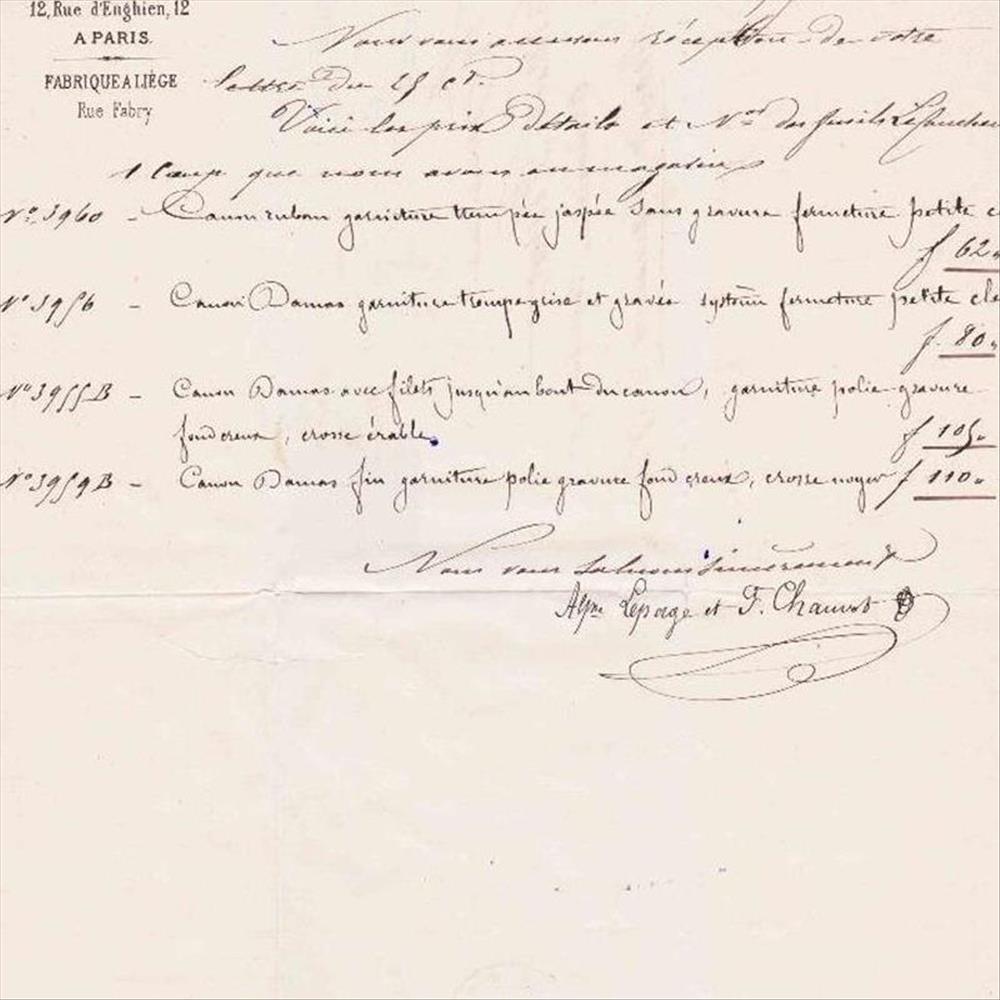 12, Rue d'Enghien, 12
A PARIS.
FABRIQUE A LIÉGE
Rue Fabry
Nous vous accusons réception de votre
lettre du 25 ct.
Voici les prix détails et Nos des fusils Lefaucheux
1 Coup que nous avons en magasin
No 3960 - Canon ruban garniture trempée jaspée sans gravure fermeture petite c
f 62"
No 3956 - Canon Damas garniture trempe grise et gravée système fermeture petite cle
f. 80"
No 3955 B - Canon Damas avec filets jusqu'au bout du canon, garniture polie gravure
fond creux, crosse érable
f 105"
No 3959 B - Canon Damas fin garniture polie gravure fond creux, crosse noyer f 110"
Nous vous saluons sincèrement
Alpse Lepage et F. Chauvot